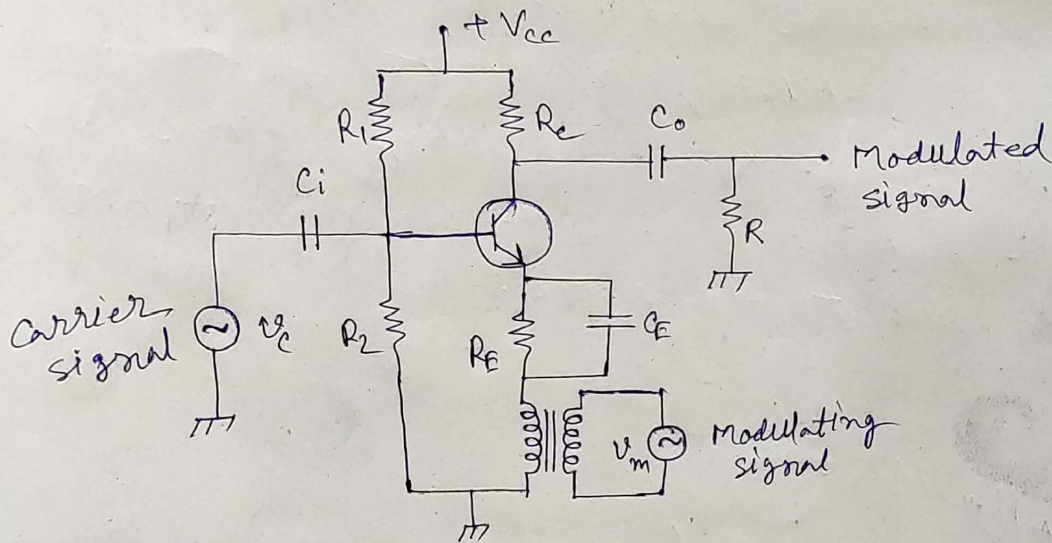 + Vcc
R1
Rc
Co
Modulated
signal
Ci
R
Carrier
signal
vc
R2
RE
CE
vm
Modulating
signal